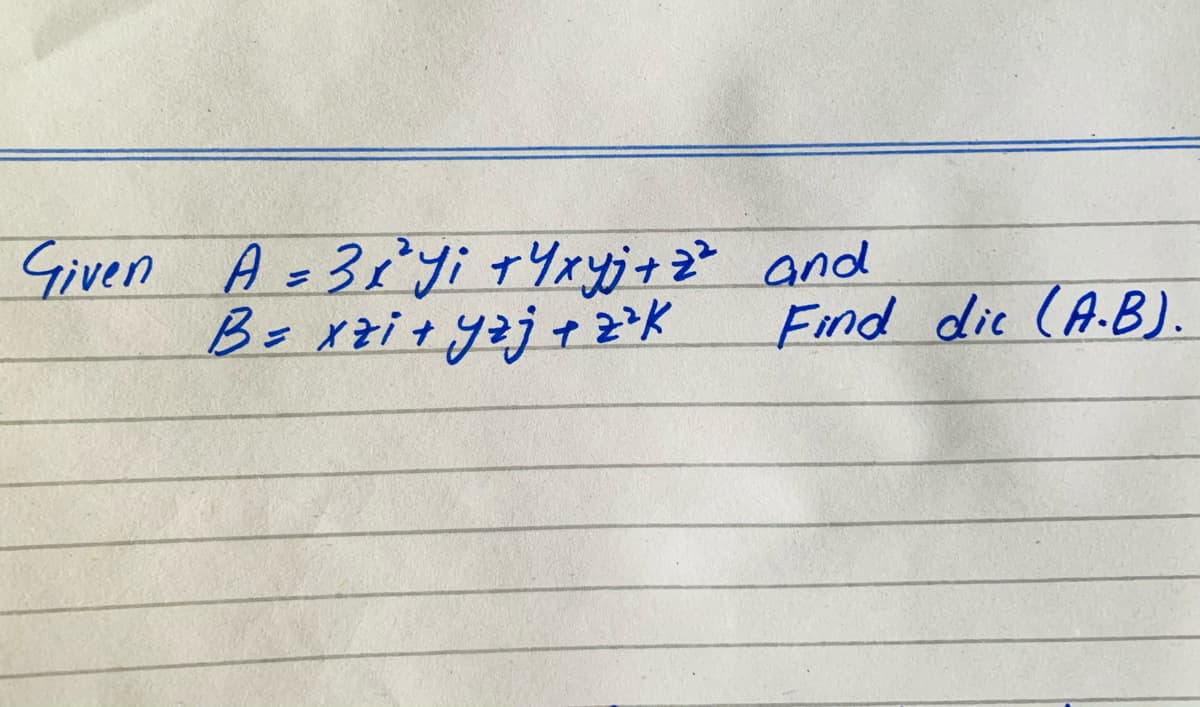 Given A = 3x²yi + 4xyj + z² and
B = xzi + yzj + z²K Find dic (A.B).